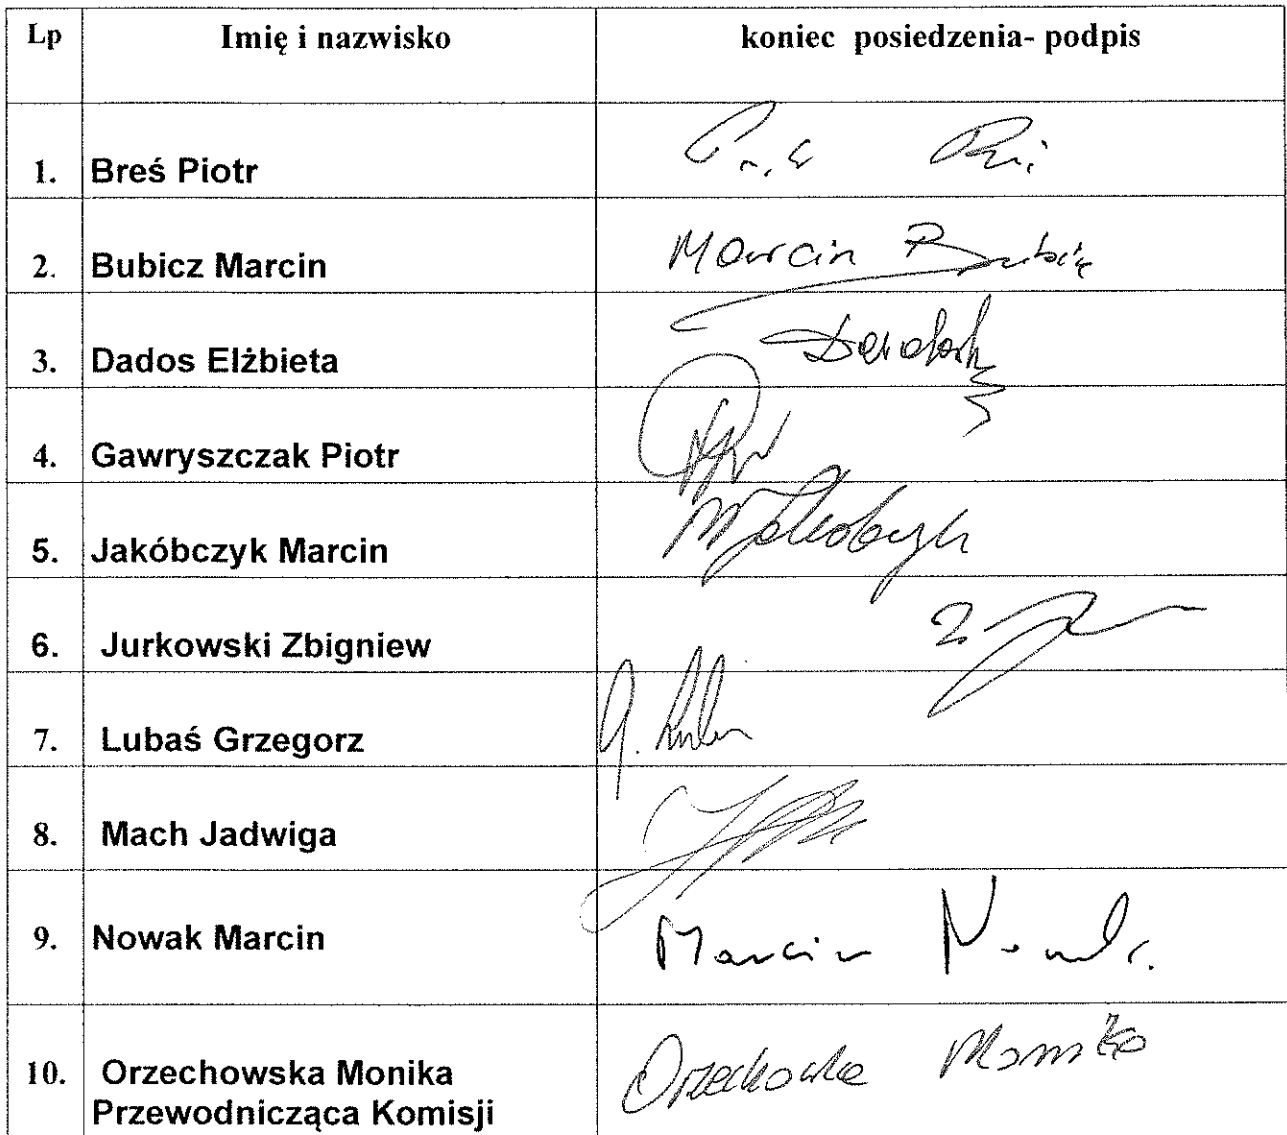 Lp Imię i nazwisko koniec posiedzenia- podpis
1. Breś Piotr
2. Bubicz Marcin Marcin Bubicz
3. Dados Elżbieta
4. Gawryszczak Piotr
5. Jakóbczyk Marcin MJakóbczyk
6. Jurkowski Zbigniew
7. Lubaś Grzegorz
8. Mach Jadwiga
9. Nowak Marcin Marcin Nowak
10. Orzechowska Monika Orzechowska Monika
Przewodnicząca Komisji